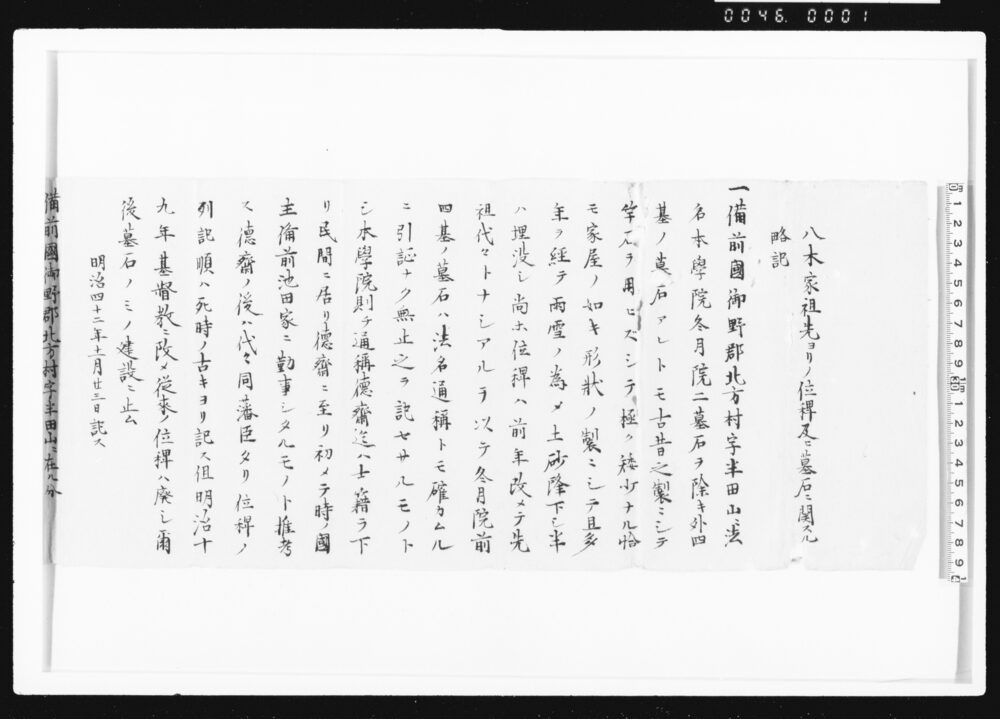 0046. 0001
八木家祖先ヨリノ位稗及ニ墓石ニ関スル
略記
一備前國御野郡北方村字半田山ニ法
名本學院冬月院二墓石ヲ除キ外四
基ノ墓石アレトモ古昔之製ニシテ
竿石ヲ用ヒズシテ極ク矮少ナル恰
モ家屋ノ如キ形状ノ製ミシテ且多
年ヲ経テ雨雪ノ為メ土砂降下シ半
ハ埋没シ尚ホ位稗ハ前年改メテ先
祖代々トナシアルヲ以テ冬月院前
四基ノ墓石ハ法名通稱トモ確カムル
ニ引証ナク無止之ヲ記セサルモノト
シ本學院則チ通稱德齋迄ハ士籍ヲ下
リ民間ニ居リ德齋ニ至リ初メテ時ノ國
主備前池田家ニ勤事シタルモノト推考
ス德齋ノ後ハ代々同藩臣タリ位稗ノ
列記順ハ死時ノ古キヨリ記ス但明治十
九年基督教ニ改メ従来ノ位稗ハ廃シ爾
後墓石ノミノ建設ニ止ム
明治四十二年十一月廿三日記ス
備前國御野郡北方村字半田山ニ在ル分